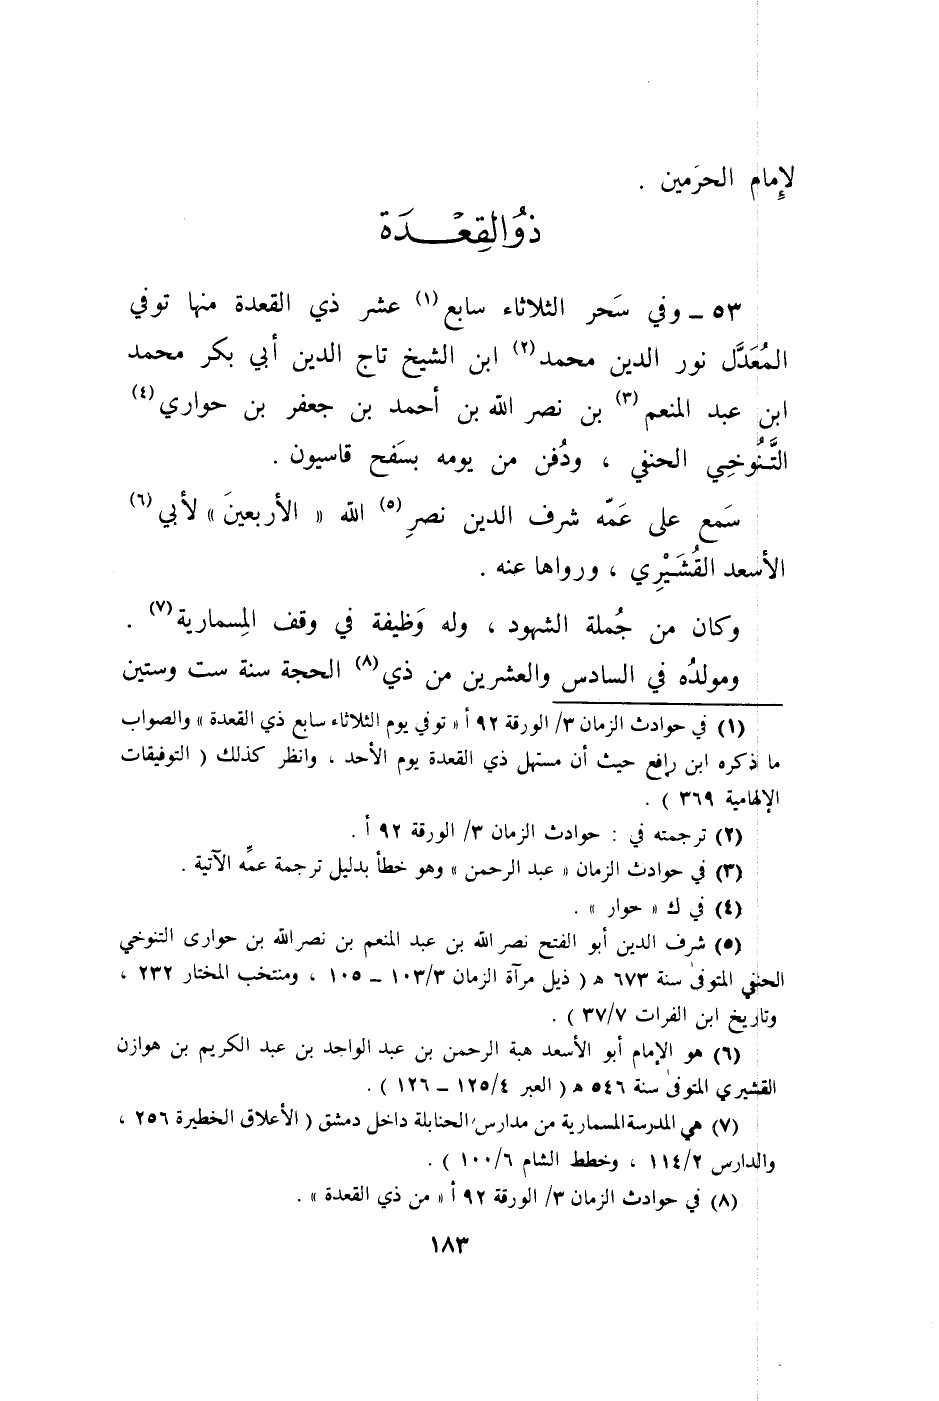 لإِمام الحرَمين .
ذُو القِعْــدَة
٥٣ ـ وفي سَحر الثلاثاء سابع (١) عشر ذي القعدة منها توفي
المُعَدَّل نور الدين محمد (٢) ابن الشيخ تاج الدين أبي بكر محمد
ابن عبد المنعم (٣) بن نصر الله بن أحمد بن جعفر بن حواري (٤)
التَّنُوخي الحنفي ، ودُفن من يومه بسَفح قاسيون .
سَمع على عَمّه شرف الدين نصرِ (٥) الله « الأربعينَ » لأبي (٦)
الأسعد القُشَيْرِي ، ورواها عنه .
وكان من جُملة الشهود ، وله وَظيفة في وقف المِسمارية (٧) .
ومولدُه في السادس والعشرين من ذي (٨) الحجة سنة ست وستين
(١) في حوادث الزمان ٣/ الورقة ٩٢ أ « توفي يوم الثلاثاء سابع ذي القعدة » والصواب
ما ذكره ابن رافع حيث أن مستهل ذي القعدة يوم الأحد ، وانظر كذلك ( التوفيقات
الإلهامية ٣٦٩ ) .
(٢) ترجمته في : حوادث الزمان ٣/ الورقة ٩٢ أ .
(٣) في حوادث الزمان « عبد الرحمن » وهو خطأ بدليل ترجمة عمِّه الآتية .
(٤) في ك « حوار » .
(٥) شرف الدين أبو الفتح نصر الله بن عبد المنعم بن نصر الله بن حوارى التنوخي
الحنفي المتوفى سنة ٦٧٣ ه ( ذيل مرآة الزمان ١٠٣/٣ ـ ١٠٥ ، ومنتخب المختار ٢٣٢ ،
وتاريخ ابن الفرات ٣٧/٧ ) .
(٦) هو الإمام أبو الأسعد هبة الرحمن بن عبد الواحد بن عبد الكريم بن هوازن
القشيري المتوفى سنة ٥٤٦ ه ( العبر ١٢٥/٤ ـ ١٢٦ ) .
(٧) هي المدرسة المسمارية من مدارس الحنابلة داخل دمشق ( الأعلاق الخطيرة ٢٥٦ ،
والدارس ١١٤/٢ ، وخطط الشام ١٠٠/٦ ) .
(٨) في حوادث الزمان ٣/ الورقة ٩٢ أ « من ذي القعدة » .
١٨٣